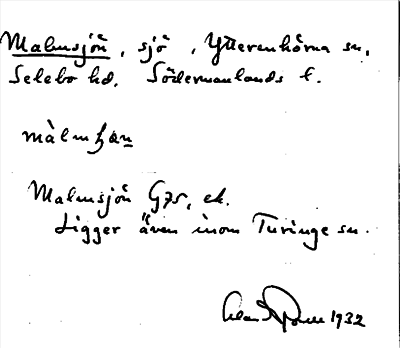 Malmsjön, sjö, Ytterenhörna sn,
Selebo hd. Södermanlands l.
màlmʃɷn
Malmsjön G75, ek.
Ligger även inom Turinge sn.
1932